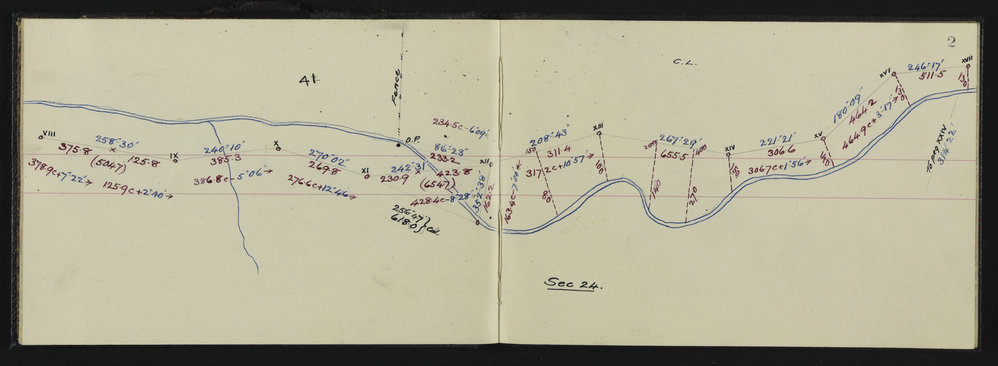 2
41
FENCE
C.L.
VIII
258°30'
375·8
(504.7)
125·8
3789c+7'22"→
1259c+2'40"→
IX
240°10'
385·3
3868c-5'06"→
X
270°02'
269·8
2766c+12'46"→
XI
242°31'
230·9
O.P.
2345c-6'09"
86°28'
233·2
423·8
(654.7)
4284c-8'28"
256°47'
618·0
} Cal.
XII
352°38'
162·2
208°43'
311·4
3172c+10'57"→
150
80
XIII
267°29'
655·5
200
400
270
XIV
221°21'
306·6
3067c+1'56"→
XV
180°09'
464·2
4649c+3'17"→
XVI
246°17'
511·5
XVII
To peg XXIV
Sec 24.